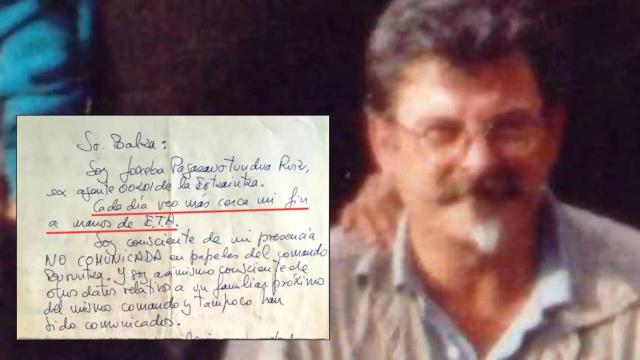 Sr. Balza:
Soy Joxeba Pagazaurtundua Ruiz,
ex agente 00201 de la Ertzaintza.
Cada día veo más cerca mi fin
a manos de ETA.
Soy consciente de mi presencia
NO COMUNICADA en papeles del comando
Buruntza. Y soy asimismo consciente de
otros datos relativos a un familiar próximo
del mismo comando y tampoco han
sido comunicados.